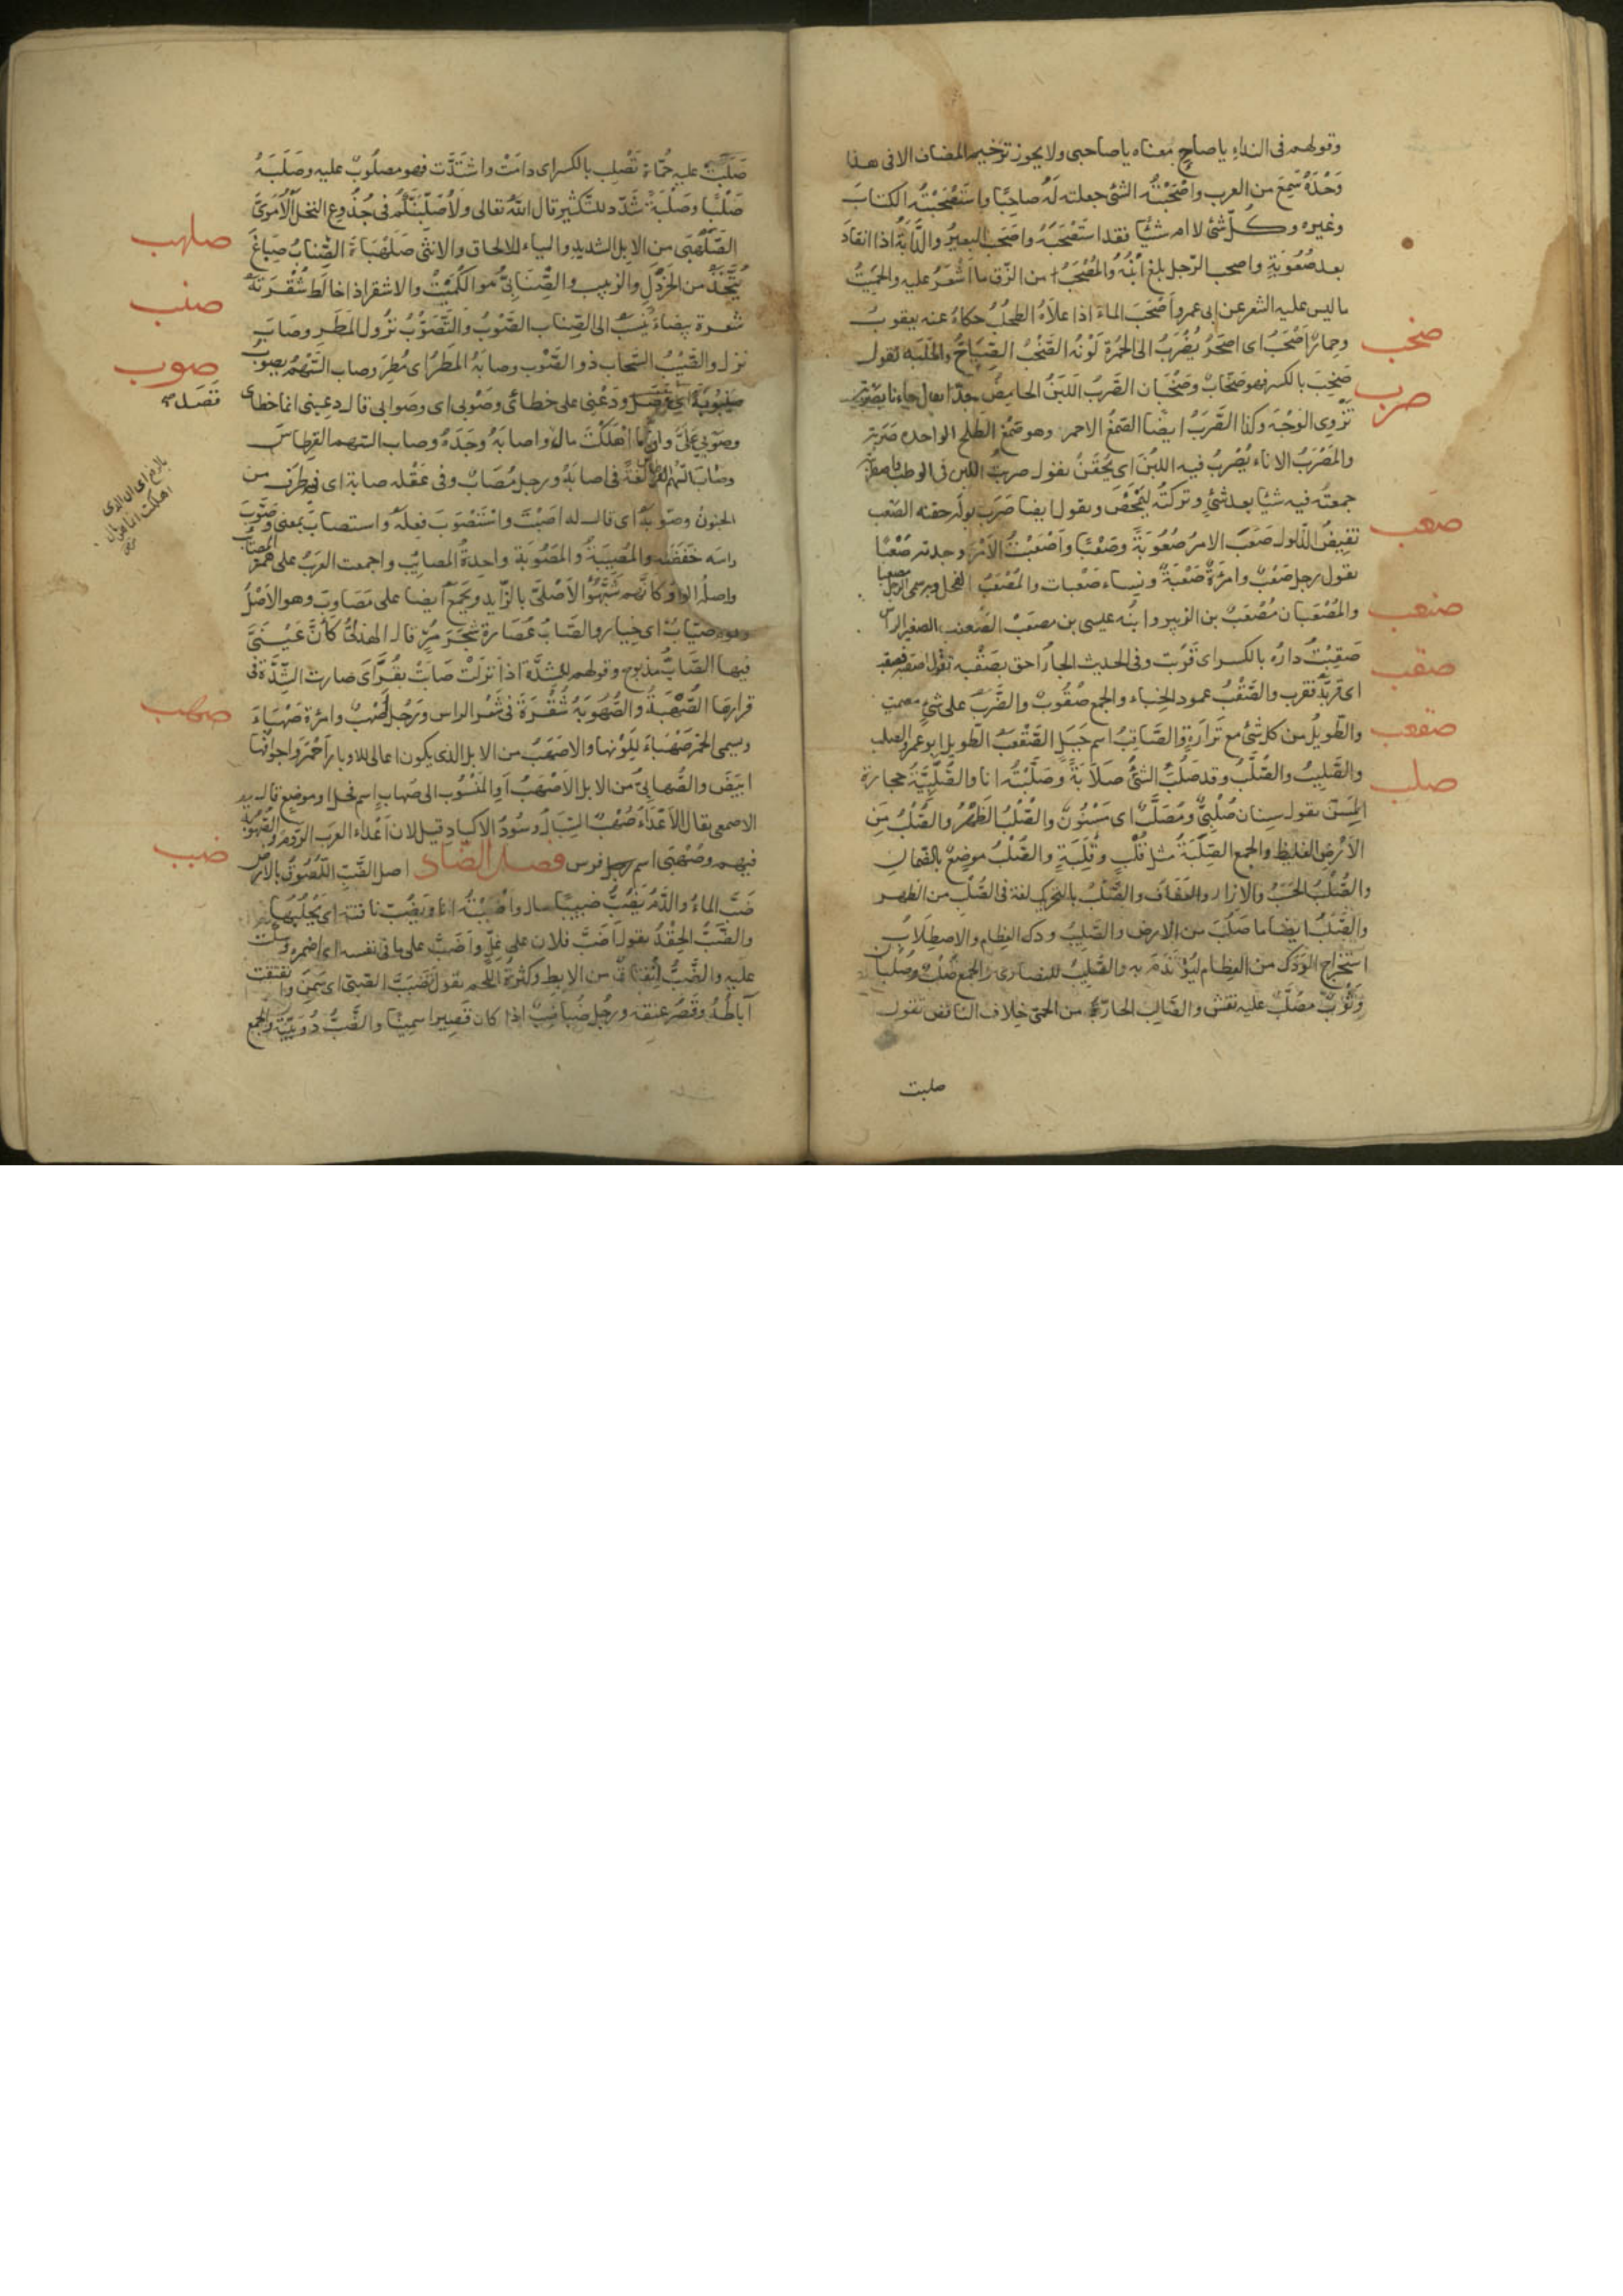 وقولهم فى النداء ياصاح معناه ياصاحبى ولا يجوز ترخيم المضاف الا فى هذا
وَحْدَهُ سُمِعَ من العرب واصْحَبْتُه الشئ جعلته لَهُ صاحِبًا واسْتَصْحَبْتُه الكتابَ
وغيره وكُلّ شئ لاام شيئا فقد استَصْحَبَهُ واصحَبَ البعيرُ والدّابَّةُ اذا انقادَ
بعد صُعُوبَةٍ واصحب الرّجل بلغ ابْنُهُ والمُصْحَبُ من الزّق ما الشَعَرُ عليه والحَمِيتُ
ما ليس عليه الشعر عن ابى عمرو اَصْحَبَ الماءُ اذا علَاهُ الطحلُبُ حكاهُ عنه يعقوبُ
وحِمارٌ اَصْحَبُ اى اصحَرُ يَضْرِبُ الى الحُمْرَةِ لَوْنُه الصَّخْبُ الصِّيَاحُ والجَلَبَه تقول
صخب
صَخِبَ بالكسر فهو صَخّابٌ وصَخْبَان الصَّرَبُ اللّبَنُ الحامِضُ جدًّا يقال جاءنا بِصَرْبَةٍ
صرب
تَزْوِى الوَجْهَ وكذا الصَّرَبُ ايضًا الصَّمْغُ الاحمر وهو صَمْغُ الطلح الواحده صَرَبَة
والمِصْرَبُ الاناء يُصْرَبُ فيه اللبَنُ اى يُحْقَنُ تقول صربتُ اللبن فى الوطب
جمعتُه فيه شيئا بعد شئٍ وتركتُه ليَحْمُضَ وتقول ايضا صَرَبَ بولَه حقنه الصَعْب
صعب
نَقِيضُ الذّلول صَعُبَ الامرُ صُعُوبَةً وصَعْبًا واَصْعَبْتُ الاَمْرَ وجدته صَعْبًا
تقول رجل صَعْبٌ وامرَةٌ صَعْبَةٌ ونساء صَعْبات والمُصْعَبُ الفحل وبه سمى الرجل مصعبا
والمُصْعَبان مُصْعَبُ بن الزبير وابنُه عيسى بن مصعب الصَّعْنَب الصغير الراس
صنعب
صَقِبَتْ دارُه بالكسر اى قَرُبَت وفى الحديث الجارُ احق بصَقْبِه تقول اصقبه فصقب
صقب
اى قرّبَهُ فقرب والصَّقْبُ عمود الخباء والجمع صُقُوبٌ والضَّرْبُ على شئ مصمت
والطّويلُ من كل شئ مع تَرَارَةٍ والصَّاقِبُ اسم جَبَلٍ الصَّقْعَبُ الطّويل ابو عمرو الصلب
صقعب
والصَّلِيبُ والصُّلَّبُ وقد صَلُبَ الشئُ صَلَابَةً وَصَلَّبْتُه انا والصُّلَّبِيَّةُ حجارة
صلب
المِسَنّ تقول سِنان صُلَّبِيٌّ ومُصَلَّبٌ اى مَسْنُونٌ والصُّلْبُ الظَهْرُ والصُّلْبُ مِنَ
الاَرْضِ الغليظ والجمع الصِّلَبَةُ مثل قُلْبٍ وقِلَبَةٍ والصُّلْبُ موضِعٌ بالصَّمانِ
والصُّلْبُ الحَسَبُ والازار والعَفَافُ والصَّلَبُ بالتحريك لغة فى الصُّلْبِ من الظهر
والصَّلَبُ ايضا ما صَلُبَ من الارض والصَّلِيبُ ودك العِظام والاصطِلَابُ
استخراج الوَدَكِ من العِظام ليُؤْتَدَمَ به والصَّلِيبُ للنصارى والجمع صُلُبٌ وصُلْبَان
وَثَوْبٌ مُصَلَّبٌ عليه نقش والصَّالِبُ الحارّةُ من الحمّى خِلاف النافض تقول
صلبت
صَلَبَتْ عليه حُمّاهُ تَصْلِب بالكسر اى دامَتْ واشتَدَّت فهو مصلُوبٌ عليه وصَلَبَهُ
صَلْبًا وصَلَّبَهُ شَدّد للتّكثير قال اللّه تعالى ولاُصَلِّبَنَّكُم فى جُذُوعِ النخل الاُمَوِىّ
الصَّلَهْبَى من الابل الشديد والياء للالحاق والانثى صَلَهْبَاةٌ الصِّنَابُ صِبَاغٌ
صلهب
يُتَّخَذُ من الخَرْدَلِ والزبيب والصِّنَابِىُّ هو الكُمَيْتُ والاشقر اذا خالَطَ شُقْرَتَهُ
صنب
شعرة بيضاءُ نُسِبَ الى الصِّناب الصَّوْبُ والتَّصَوُّبُ نزُول المَطَرِ وصابَ
صوب
نزل والصَّيِّبُ السّحاب ذو الصَّوْب وصابَهُ المَطَرُ اى مُطِرَ وصاب السَّهْمُ يصوب
صَيْبُوبَةً اى قَصَدَ ودَعْنِى على خطائى وصَوْبِى اى وصَوابى قال دعينى انما خطاى
قَصَدَ صح
وصَوْبِى عَلَىَّ وانّ ما اَهْلَكْتُ مال واصابَهُ وجَدَهُ وصاب السّهم القرطاسَ
وصَابَ السّهْمُ لُغَةً فى اصابَهُ ورجل مُصَابٌ وفى عَقْله صابَة اى طرف من
الجنون وصَوَّبَهُ اى قال له اصَبْتَ واسْتَصْوَبَ فِعلَهُ واستصابَ بمعنى وصَوَّبَ
راسَه خَفَضَه والمُصِيبَةُ والمَصُوبَة واحِدةُ المصائِب واجمعت العرَبُ على همز المصائب
واصلُه الواوُ كانّهم شَبَّهُوا الاَصْلىّ بالزّايد ويُجمَعُ ايضا على مَصَاوِب وهو الاَصْلُ
وقوم صُيّابٌ اى خِيار والصَّابُ عُصَارة شَجَرَ مُرّ قال الهذلىُّ كَاَنَّ عَيْنِىَ
فيها الصَّابُ مذبوح وقولهم للشدّة اذا نزلَتْ صَابَتْ بقُرّ اى صارت الشِّدّةُ فى
قرارها الصُّهْبَةُ والصُّهُوبَة شُقْرَة فى شَعْر الراس ورجُل اَصْهَبُ وامرُة صَهْبَاءُ
صهب
ويسمى الخمرُ صَهْبَاءَ لِلَوْنِها والاصهَبُ من الابل الذى يكون اعالى للاوبار اَحْمَرَ واجوافُها
ابيَضَ والصُّهابِىُّ من الابل الاَصْهَبُ اَوِ المَنْسُوب الى صُهابٍ اسم فحل او موضع قال
الاصمعى يقال الاَعْدَاءُ صُهْبُ السِّبَالِ وسُودُ الاَكبادِ قيل لان اَعْدَاء العرب الرّوم والصُّهُوبَةُ
فيهم وصُهْبَى اسم فرس فصل الضّاد اصل الضَّبّ اللُّصُوقُ بالارض
ضبب
ضَبَّ الماءُ والدَّمُ يَضِبُّ ضبيبًا سال واَضْبَبْتُه انا ويَضُبُّ ناقته اى يَحْلُبُها
والضَّبُّ الحِقْدُ تقول اَضَبَّ فلان على غِلٍّ واَضَبَّ على ما فى نفسه اى اضمره وسكت
عليه والضَّبُّ انفتاق من الابط وكثرَةُ اللحم تقول تَضَبَّبَ الصَّبىّ اى سَمِنَ وانفتقت
آباطُهُ وقَصُرَ عنقه ورجُل ضُباضِبٌ اذا كان قَصيرا سمِينًا والضَّبُّ دُوَيْبَّة والجمع